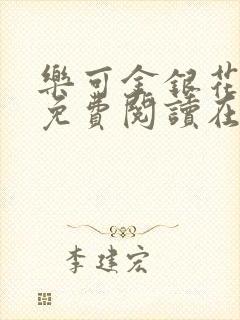 樂可金銀花
免費閱讀在
李建宏